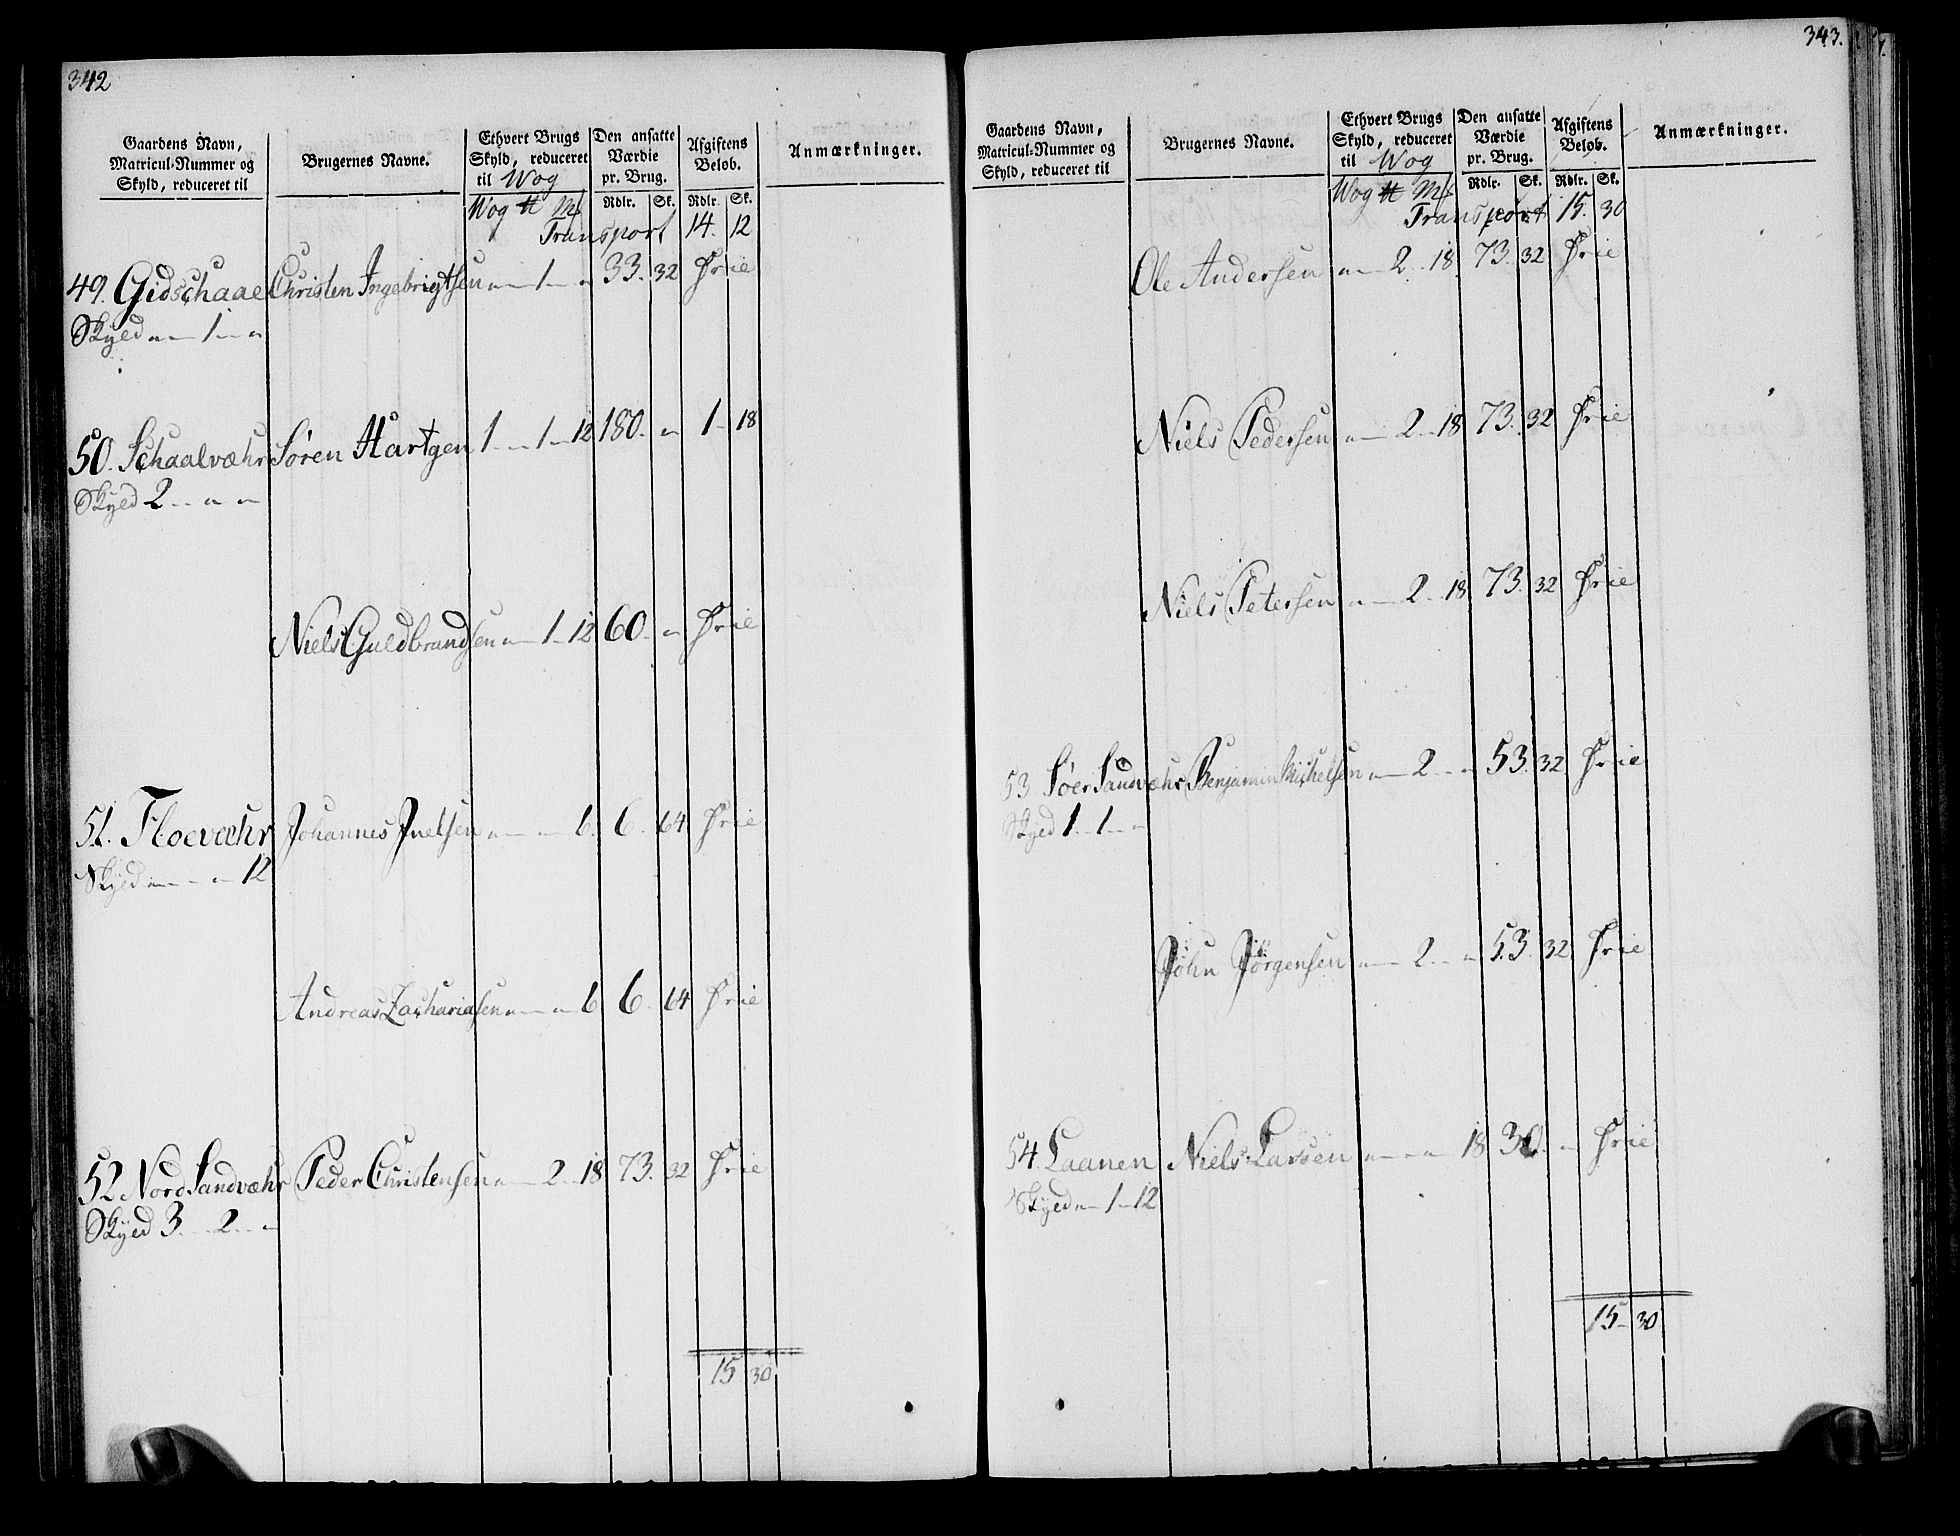 342
Gaardens Navn, Matricul-Nummer og Skyld, reduceret til
Brugernes Navne.
Ethvert Brugs Skyld, reduceret til Wog
Den ansatte Værdie pr. Brug.
Afgiftens Beløb.
Anmærkninger.
Wog ℔ Mk Rdlr. Sk. Rdlr. Sk.
Transport 14. 12
49. Gidschaae Christen Ingebrigtsen „ — 1 — „ 33. 32 Frie
Skyld „ — 1 — „
50. Schaalvæhr Sören Hartgen 1 — 1 — 12 180. „ 1 — 18
Skyld 2 — „ — „
Niels Guldbrandsen „ — 1 — 12 60. „ Frie
51. Floevæhr Johannes Juelsen „ — „ 6. 6. 64 Frie
Skyld „ — „ — 12
Andreas Zachariasen „ — „ 6 6. 64 Frie
52 Nord Sandvæhr Peder Christensen „ — 2 — 18 73. 32 Frie
Skyld 3. — 2 — „
15 30
343.
Gaardens Navn, Matricul-Nummer og Skyld, reduceret til
Brugernes Navne.
Ethvert Brugs Skyld, reduceret til Wog
Den ansatte Værdie pr. Brug.
Afgiftens Beløb.
Anmærkninger.
Wog ℔ Mk Rdlr. Sk. Rdlr. Sk.
Transport 15. 30
Ole Andersen „ — 2 — 18. 73. 32 Frie
Niels Pedersen „ — 2 — 18 73. 32 Frie
Niels Petersen „ — 2 — 18 73. 32 Frie
53 Söer Sandvæhr Benjamin Michelsen „ — 2 — „ 53. 32 Frie
Skyld 1 — 1 — „
John Jörgensen „ — 2 — „ 53. 32 Frie
54. Laanen Niels Larsen „ — „ — 18 30. „ Frie
Skyld „ — 1 — 12
15 — 30